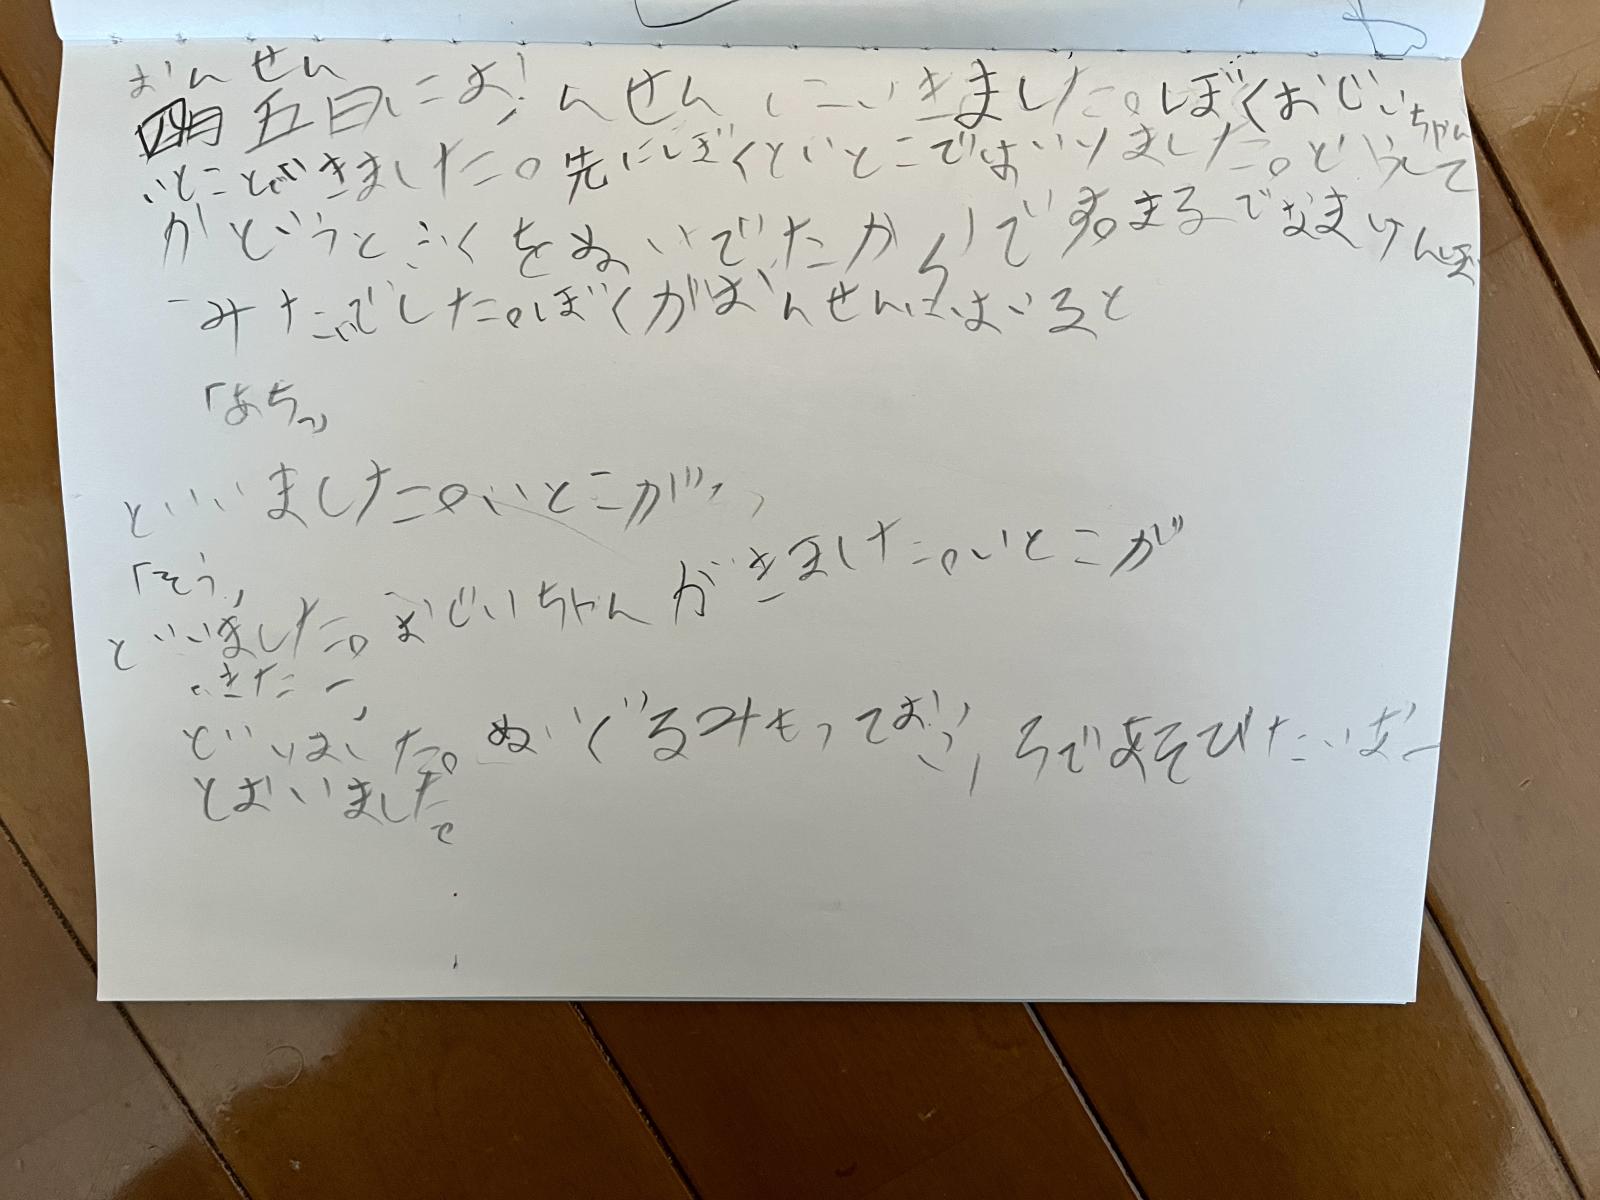 おんせん
四月五日におんせんにいきました。ぼくおじいちゃん
いとことできました。先にぼくといとこではいりました。どうして
かというとふくをぬいでたからです。まるでなまけんぼ
うみたいでした。ぼくがおんせんにはいると
「あちっ」
といいました。いとこが、
「そう」
といいました。おじいちゃんがきました。いとこが
きたー」
といいました。ぬいぐるみもっておふろであそびたいなー
とおいました。